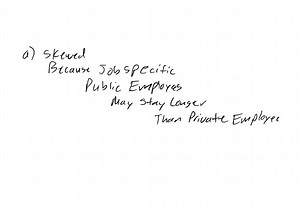 a) Skewed
Because Job specific
Public Employes
May Stay Longer
Than Private Employee